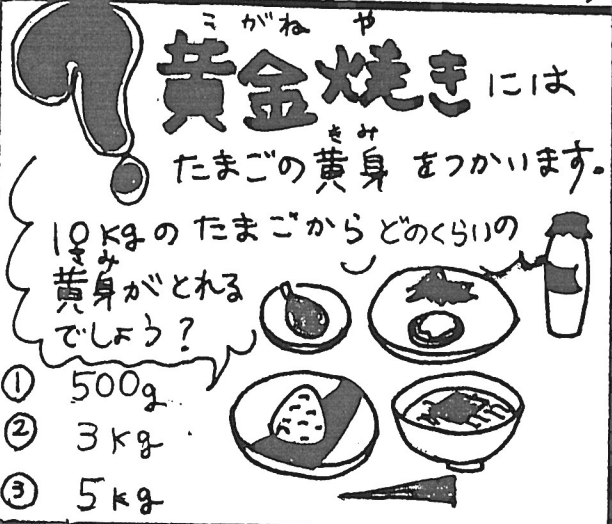 こがねや
黄金焼きには
きみ
たまごの黄身をつかいます。
10kgのたまごからどのくらいの
きみ
黄身がとれる
でしょう?
① 500g
② 3kg
③ 5kg